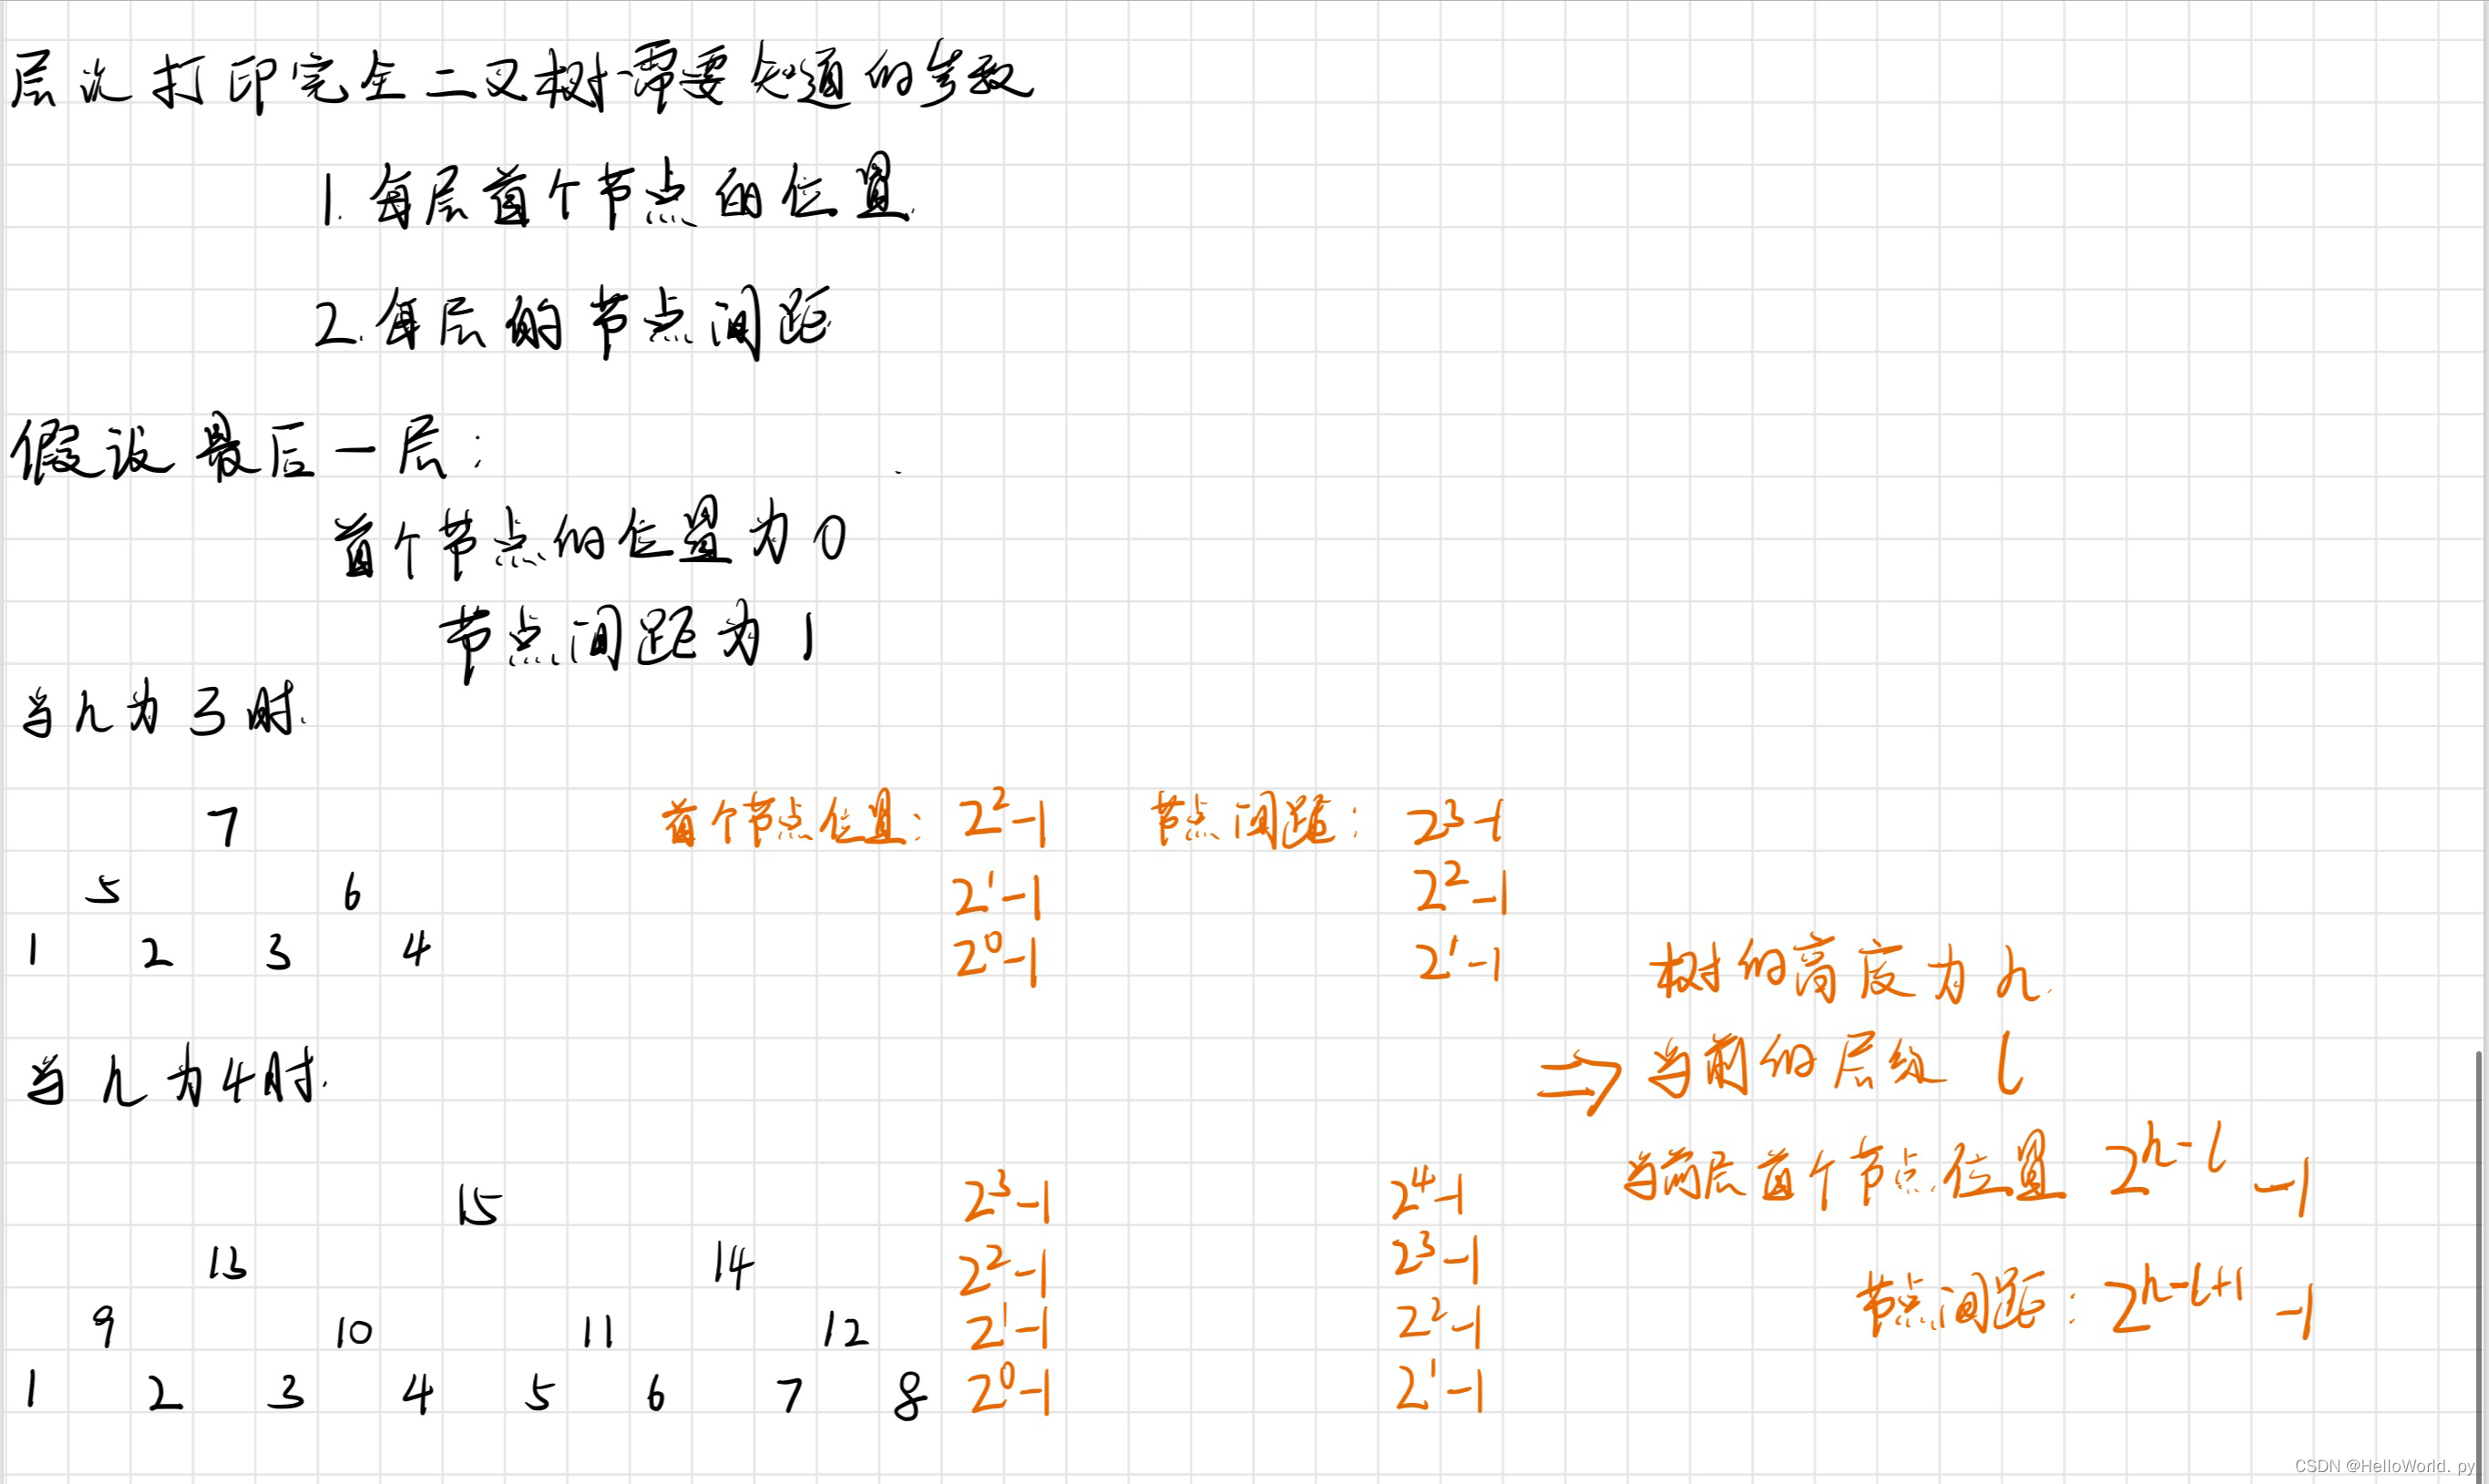 层次打印完全二叉树需要知道的参数
1. 每层首个节点的位置
2. 每层的节点间距
假设最后一层:
首个节点的位置为0
节点间距为1
当h为3时.
7 首个节点位置: 2²-1 节点间距: 2³-1
5 6 2¹-1 2²-1
1 2 3 4 2⁰-1 2¹-1
树的高度为h.
当h为4时.
⇒ 当前的层级 l
当前层首个节点位置 2^{h-l} -1
15 2³-1 2⁴-1
13 14 2²-1 2³-1
节点间距: 2^{h-l+1} -1
9 10 11 12 2¹-1 2²-1
1 2 3 4 5 6 7 8 2⁰-1 2¹-1
CSDN @HelloWorld. py